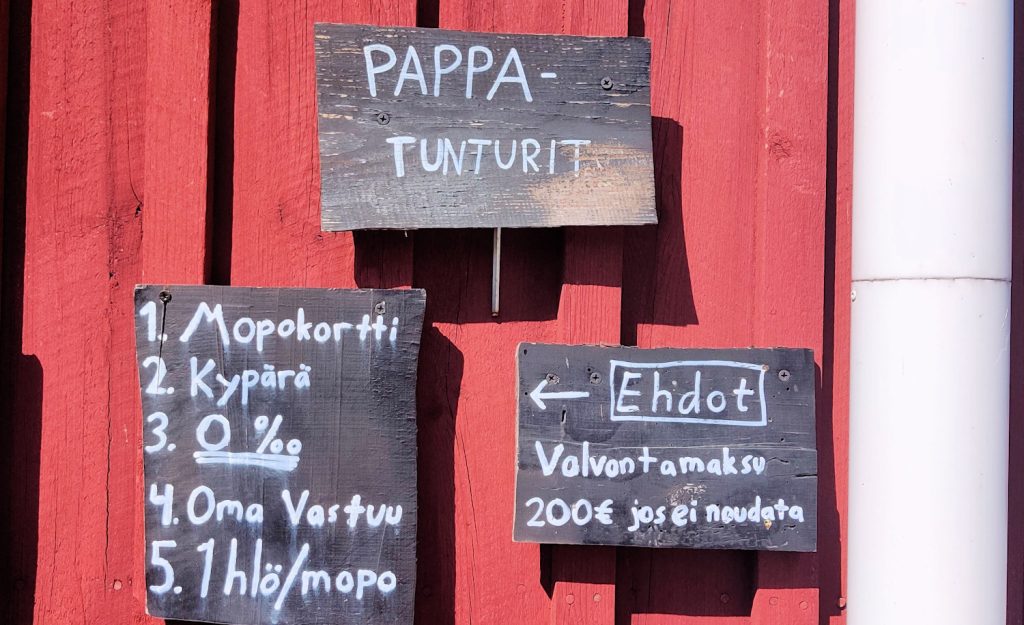 PAPPA-
TUNTURIT
1. Mopokortti
2. Kypärä
3. 0 ‰
4. Oma Vastuu
5. 1hlö/mopo
← Ehdot
Valvontamaksu
200€ jos ei noudata